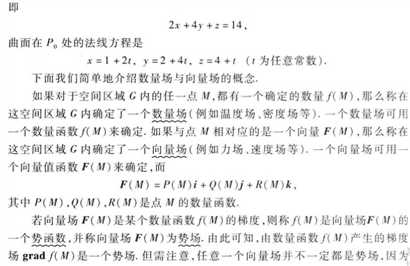 即
2x+4y+z=14,
曲面在 P₀ 处的法线方程是
x=1+2t, y=2+4t, z=4+t (t 为任意常数).
下面我们简单地介绍数量场与向量场的概念.
如果对于空间区域 G 内的任一点 M,都有一个确定的数量 f(M),那么称在
这空间区域 G 内确定了一个数量场(例如温度场、密度场等).一个数量场可用
一个数量函数 f(M)来确定.如果与点 M 相对应的是一个向量 F(M),那么称在
这空间区域 G 内确定了一个向量场(例如力场、速度场等).一个向量场可用一
个向量值函数 F(M)来确定,而
F(M)=P(M)i+Q(M)j+R(M)k,
其中 P(M),Q(M),R(M)是点 M 的数量函数.
若向量场 F(M)是某个数量函数 f(M)的梯度,则称 f(M)是向量场F(M)的
一个势函数,并称向量场 F(M)为势场.由此可知,由数量函数 f(M)产生的梯度
场 grad f(M)是一个势场.但需注意,任意一个向量场并不一定都是势场,因为